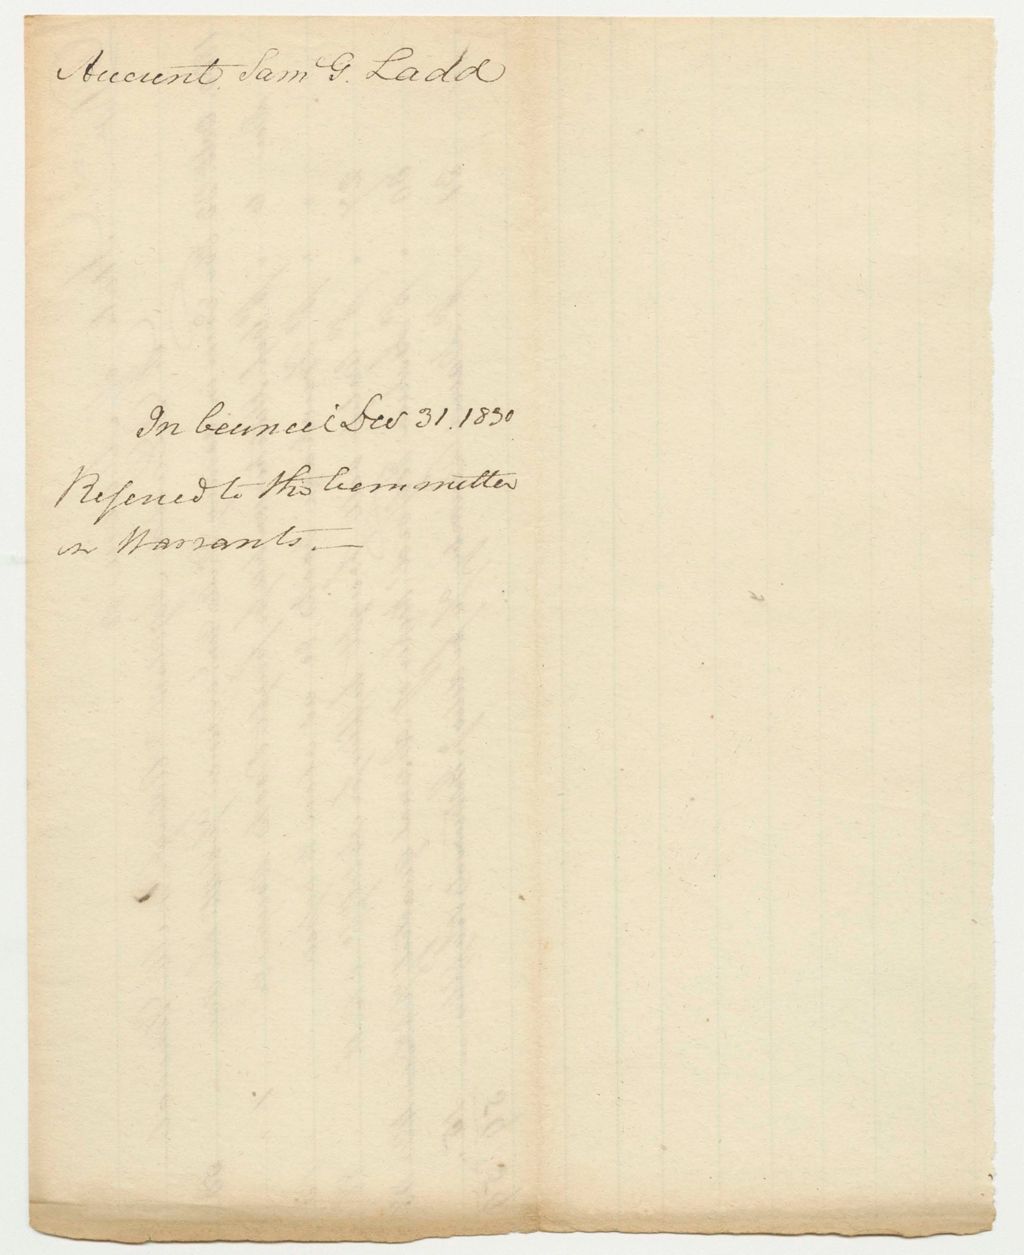 Account. Saml G. Ladd
In Council Dec 31. 1830
Referred to the Committee
on Warrants. —